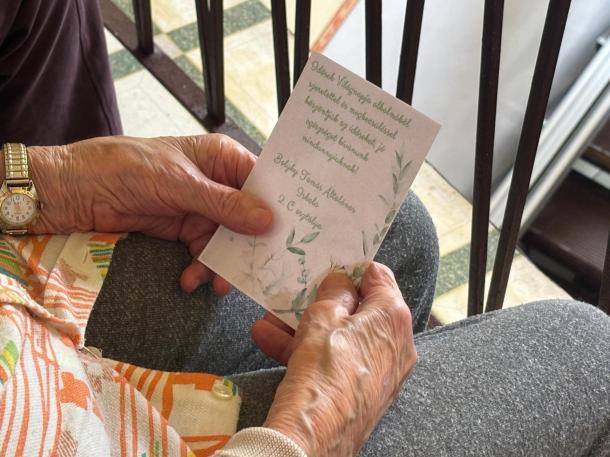 Idősek Világnapja alkalmából
szeretettel és megbecsüléssel
köszöntjük az időseket, jó
egészséget kívánunk
mindannyiuknak!
Beleglay Tamás Általános
Iskola
2. C osztálya